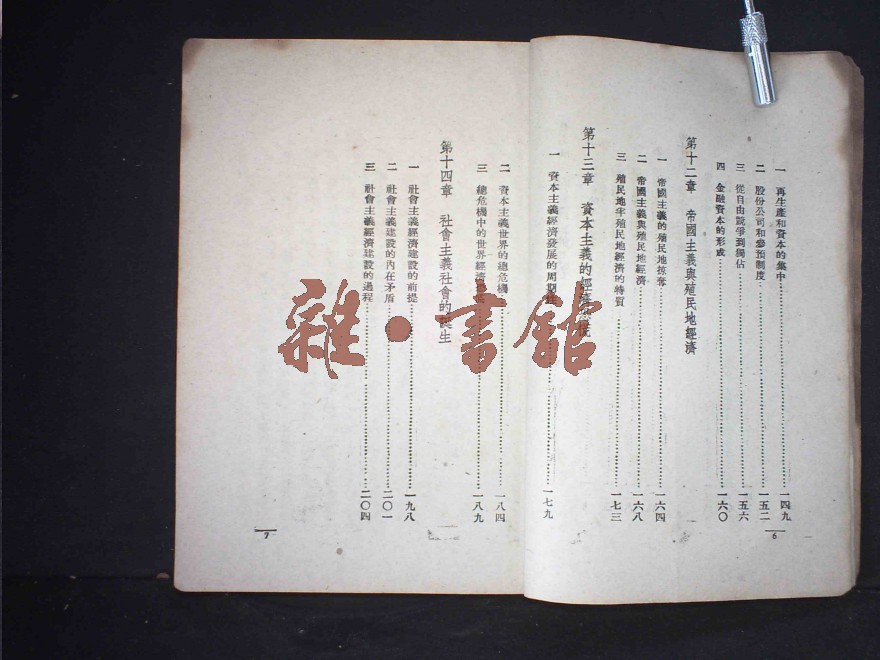 一 再生產和資本的集中……一四九
二 股份公司和參預制度……一五二
三 從自由競爭到獨佔……一五六
四 金融資本的形成……一六〇
第十二章 帝國主義與殖民地經濟
一 帝國主義的殖民地掠奪……一六四
二 帝國主義與殖民地經濟……一六八
三 殖民地半殖民地經濟的特質……一七三
第十三章 資本主義的經濟
6
一 資本主義經濟發展的周期性……一七九
二 資本主義世界的總危機……一八四
三 總危機中的世界經濟……一八九
第十四章 社會主義社會的誕生
一 社會主義經濟建設的前提……一九八
二 社會主義建設的內在矛盾……二〇一
三 社會主義經濟建設的過程……二〇四
7
雜·書館